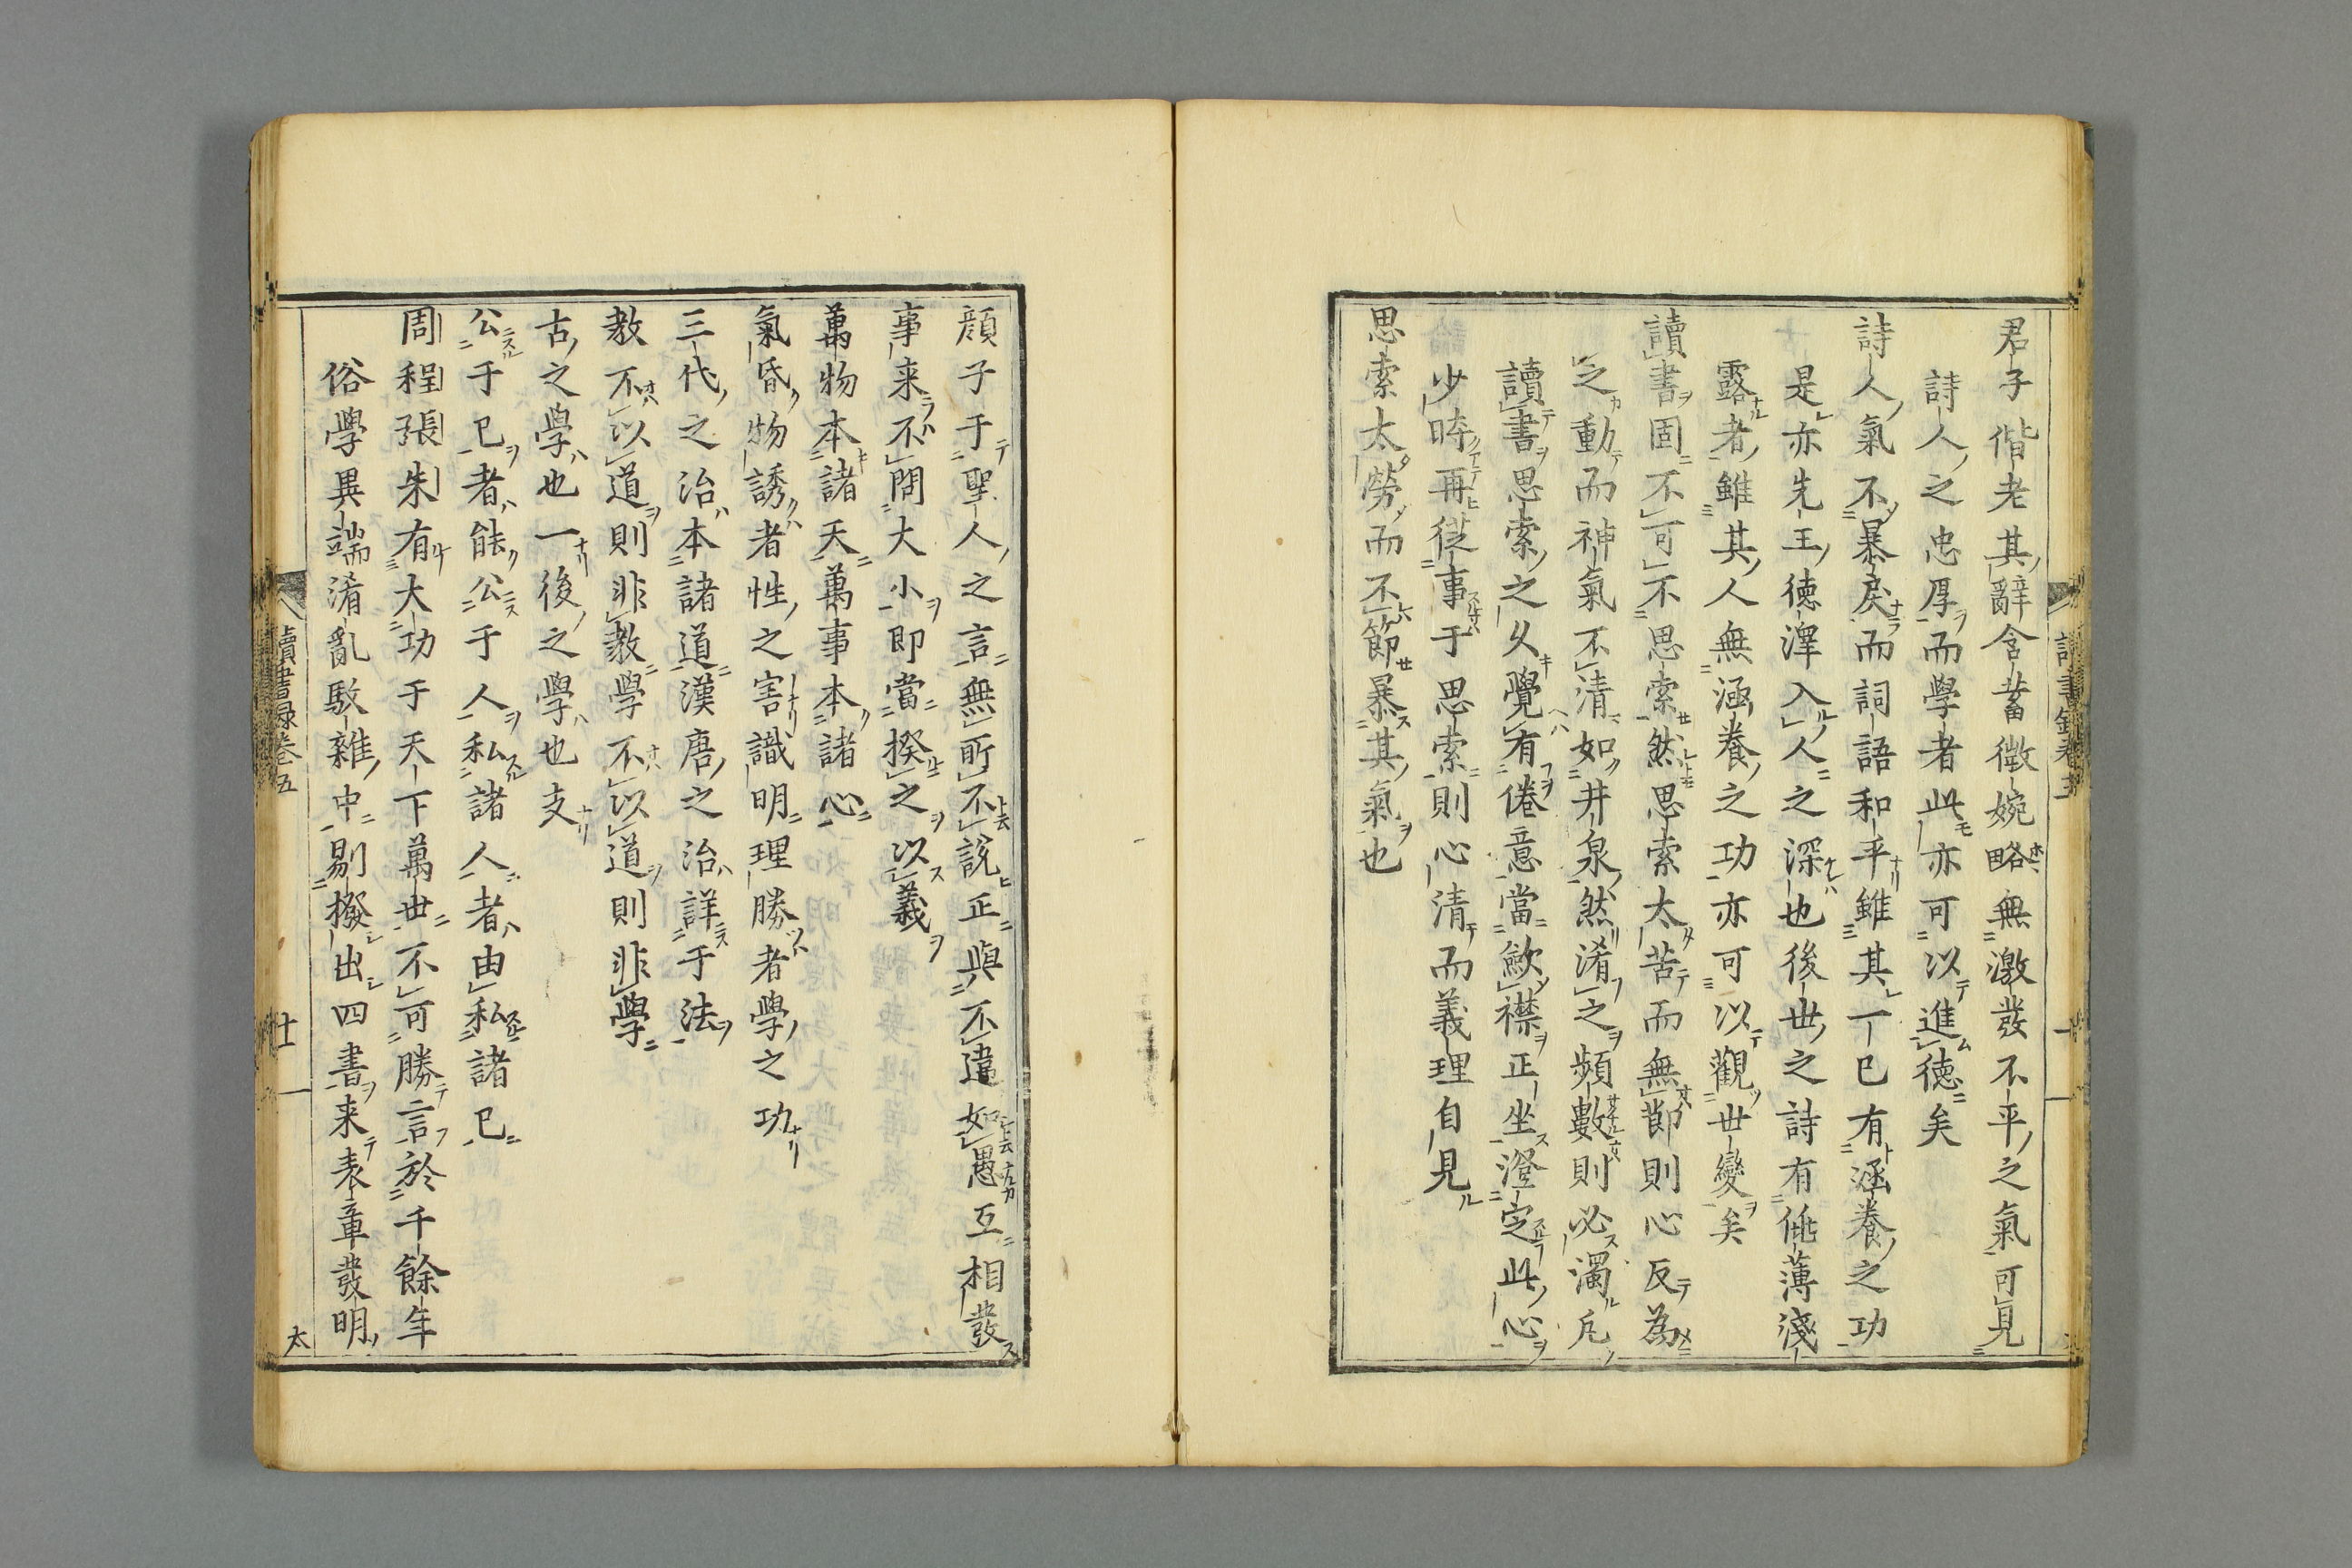 君子偕老其辭含蓄微婉略無激發不平之氣可見
詩人之忠厚而學者此亦可以進德矣
詩人氣不暴戾而詞語和平雖其一已有涵養之功
是亦先王德澤入人之深也後世之詩有佻薄淺
露者雖其人無涵養之功亦可以觀世變矣
讀書固不可不思索然思索太苦而無節則心反為
之動而神氣不清如井泉然淆之頻數則必濁凡
讀書思索之久覺有倦意當歛襟正坐澄定此心
少時再從事于思索則心清而義理自見
思索太勞而不節暴其氣也
顔子于聖人之言無所不說正與不違如愚互相發
事来不問大小即當揆之以義
萬物本諸天萬事本諸心
氣昏物誘者性之害識明理勝者學之功
三代之治本諸道漢唐之治詳于法
教不以道則非教學不以道則非學
古之學也一後之學也支
公于已者能公于人私諸人者由私諸已
周程張朱有大功于天下萬世不可勝言於千餘年
俗學異端淆亂駁雜中剔撥出四書来表章發明
讀書録卷五
十一
太